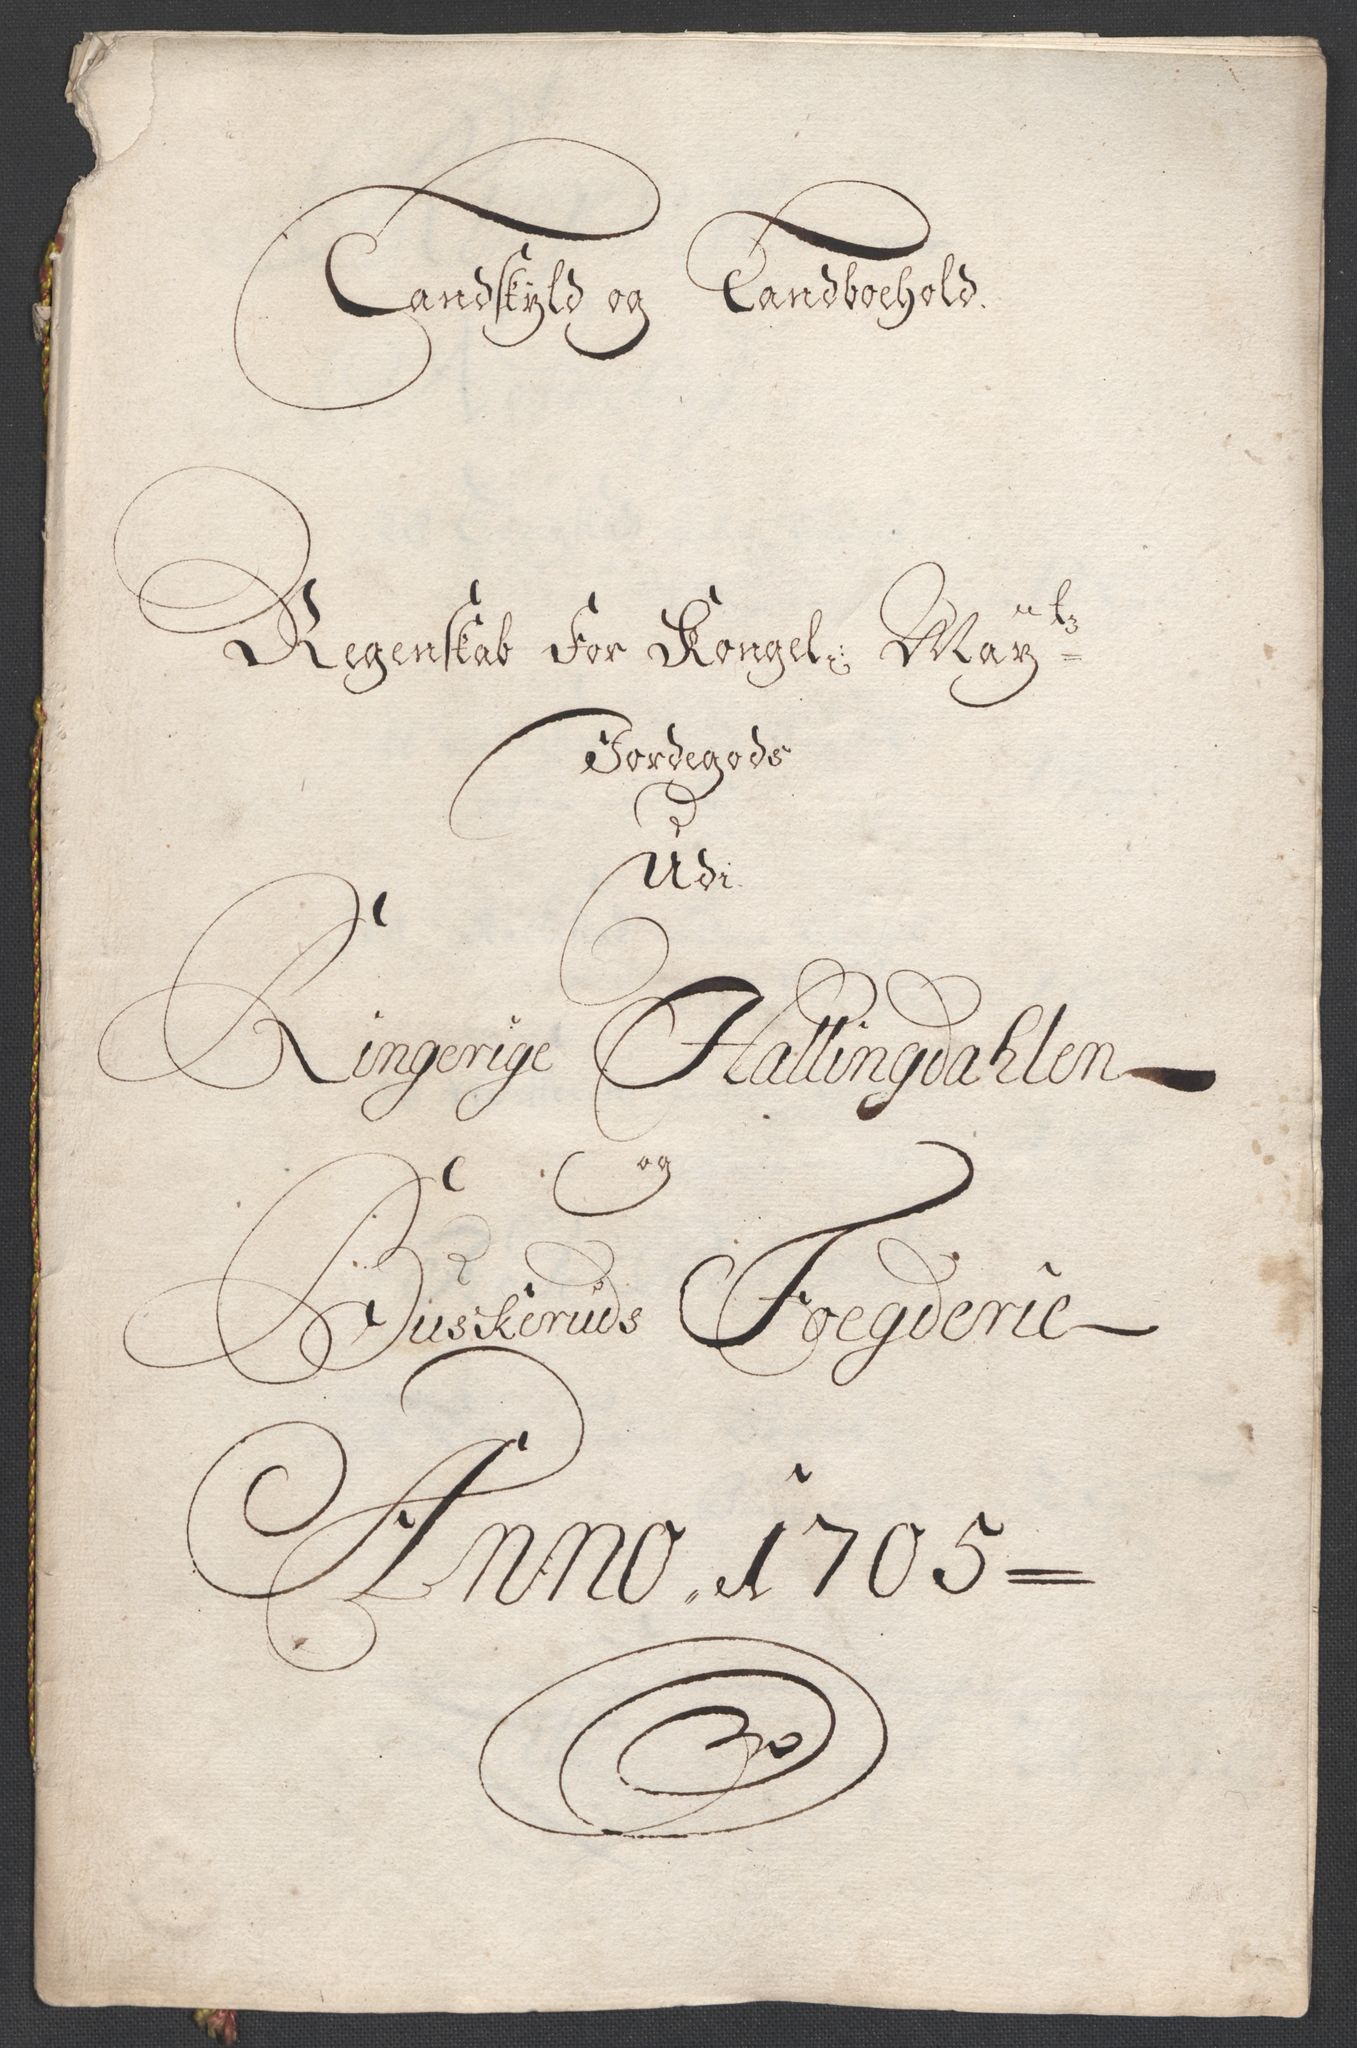 Landskyld og Landboehold.
Regenskab for Kongel: Maÿtz
Jordegods
Udi
Ringerige Hallingdahlen
og
Buskeruds Foegderie
Anno 1705